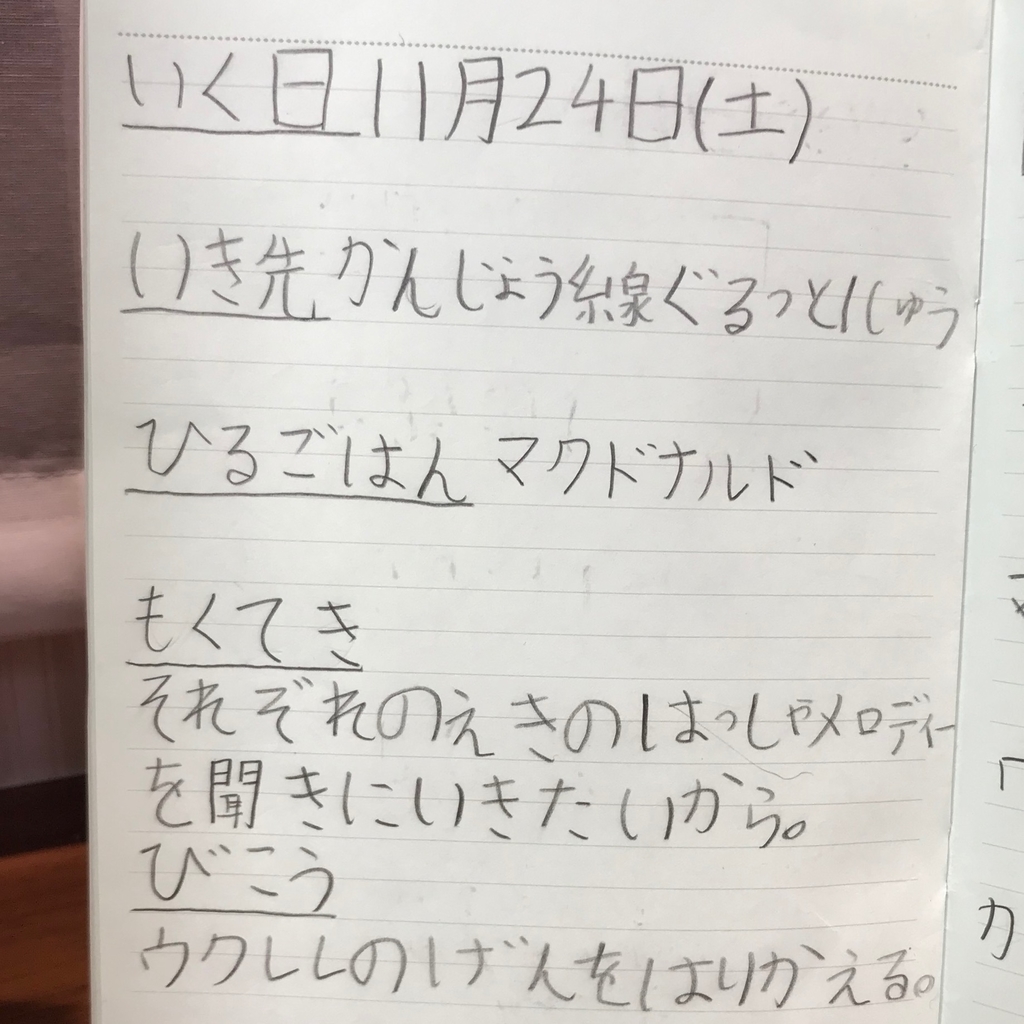 いく日 11月24日(土)
いき先 かんじょう線ぐるっとIしゅう
ひるごはん マクドナルド
もくてき
それぞれのえきのはっしゃメロディー
を聞きにいきたいから。
びこう
ウクレレのげんをはりかえる。
カ